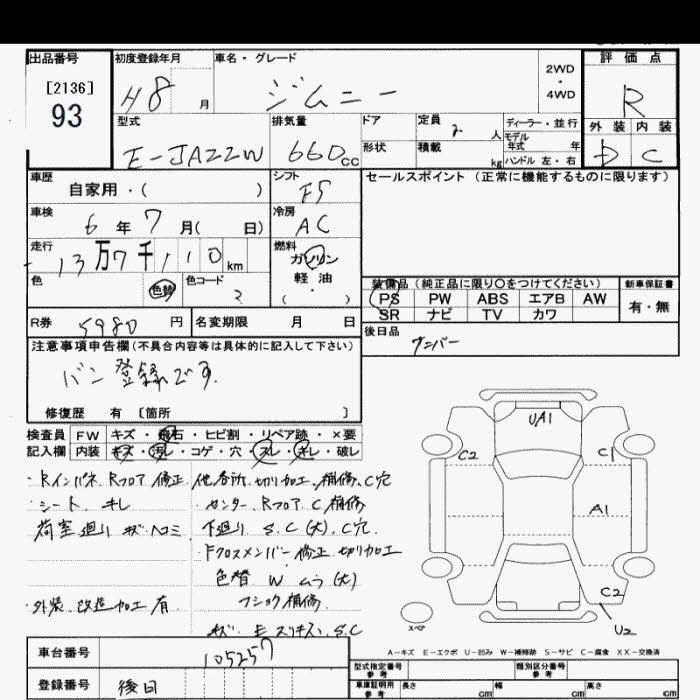 出品番号 初度登録年月 車名・グレード 評価点
[2136]
93
H8 月 ジムニー 2WD・4WD R
型式 排気量 ドア 定員 2 人 ディーラー・並行 外装 内装
E-JA22W 660cc 形状 積載 kg モデル年式 年 ハンドル 左・右 D C
車歴 シフト セールスポイント (正常に機能するものに限ります)
自家用・( ) F5
車検 冷房
6年7月( 日) AC
走行 燃料
13万7千110km ガソリン
色 色替 色コード 2 軽油
( )
装備品 (純正品に限り○をつけてください) 新車保証書
PS PW ABS エアB AW 有・無
SR ナビ TV カワ
R券 5980円 名変期限 月 日 後日品
ナンバー
注意事項申告欄(不具合内容等は具体的に記入して下さい)
バン登録です.
修復歴 有 [箇所 ]
検査員 FW キズ・飛石・ヒビ割・リペア跡・×要
記入欄 内装 キズ・汚レ・コゲ・穴・スレ・キレ・破レ
・Rインパネ、Rフロア 修正 他各所、切り加工、補修、C穴
・シート、キレ ・センター、Rフロア C 補修
荷室 廻り キズ ヘコミ 下廻り S.C(大)、C穴
・Fクロスメンバー 修正 切り加工
色替 W ムラ(大)
・外装、改造加工 有
キズ E スリキズ、S.C
UA1
C2 C1
A1
C2
U2
スペア
A-キズ E-エクボ U-凹み W-補修跡 S-サビ C-腐食 XX-交換済
車台番号 105257 型式指定番号 参考 類別区分番号 参考
登録番号 後日 車庫証明用 参考 長さ cm 幅 cm 高さ cm